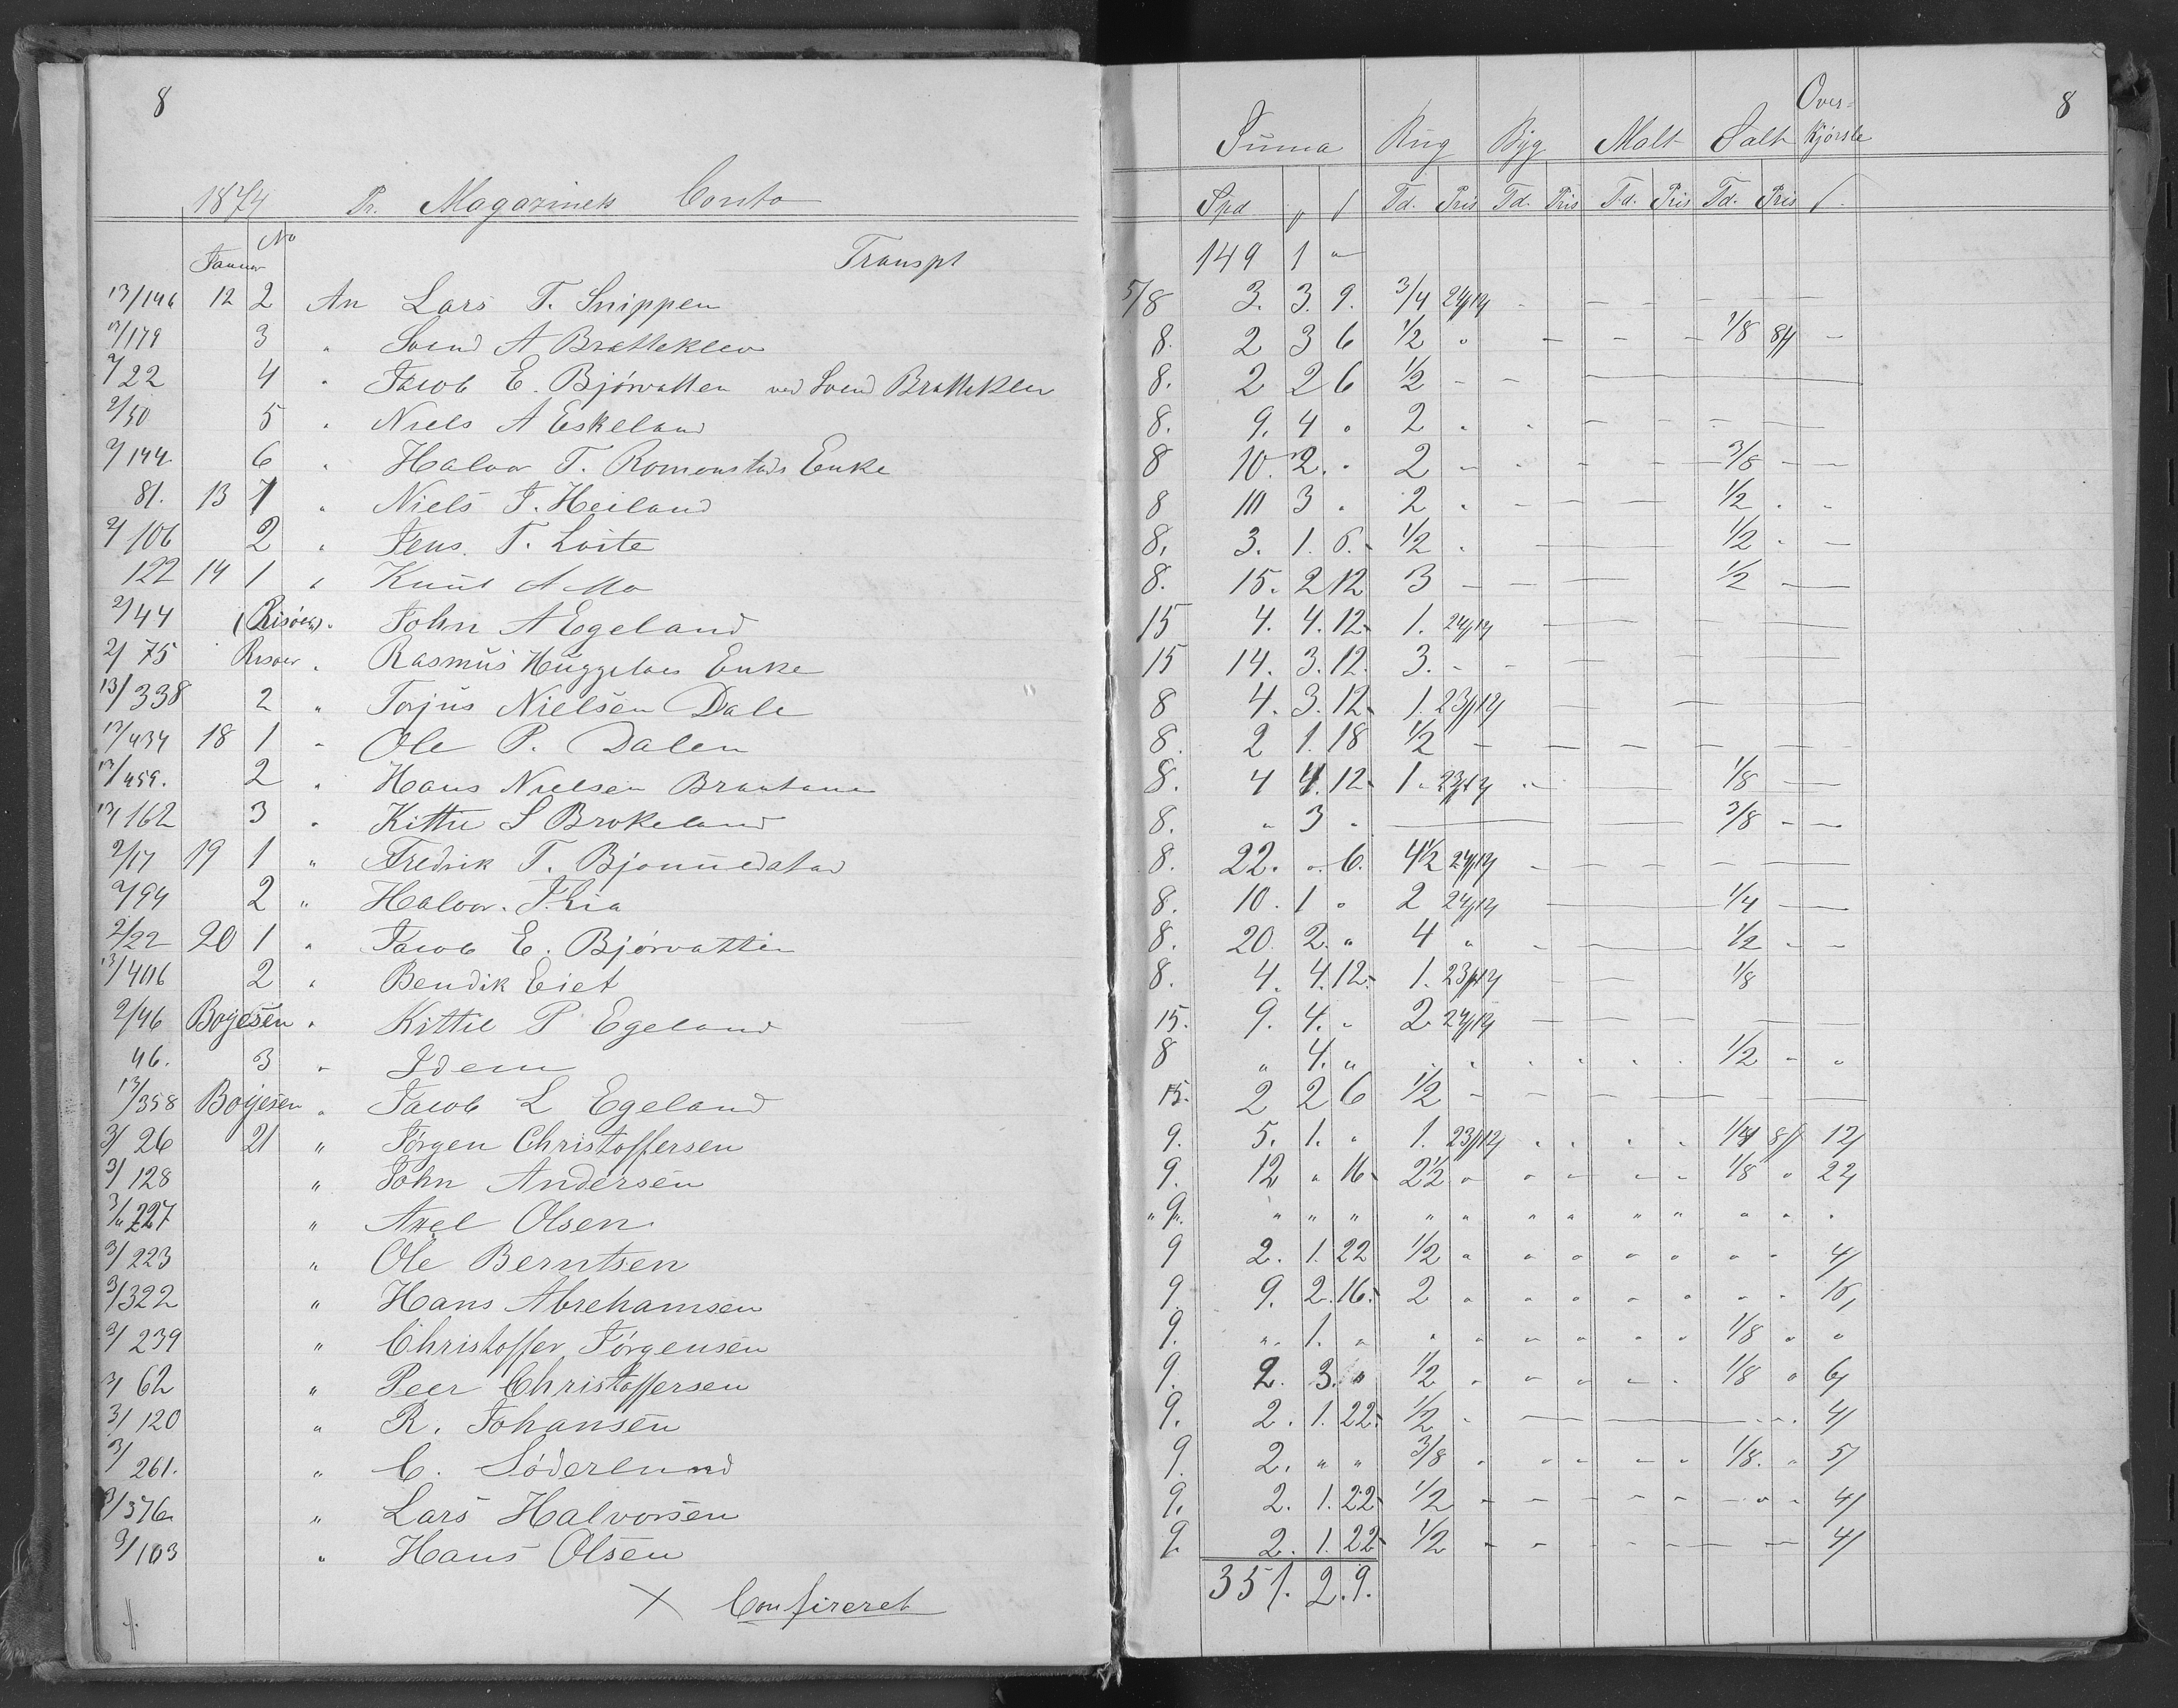 8
1874 Pr. Magazinets Conto
Januar No Transpt
13/146 12 2 An Lars T. Snippen
13/179 3 " Svend A Bratteklev
2/22 4 " Jacob E. Bjørvatten ved Svend Bratteklev
2/50 5 " Niels A Eskeland
2/144 6 " Halvor T. Romonstads Enke
81. 13 1 " Niels T. Heiland
2/106 2 " Jens T. Loite
122 14 1 " Knut A Mo
2/44 (Risøer). John A Egeland
2/75 Risøer " Rasmus Huggelaes Enke
13/338 2 " Torjus Nielsen Dale
13/434 18 1 " Ole P. Dalen
13/459. 2 " Hans Nielsen Brautane
13/162 3 " Kittel S Brokeland
2/17 19 1 " Fredrik T. Bjonnedatad
2/94 2 " Halvor T. Lia
2/22 20 1 " Jacob E. Bjørvatten
13/406 2 " Bendik Eiet
2/46 Boyesen " Kittil P Egeland
46. 3 " Idem
13/358 Boyesen " Jacob L Egeland
3/26 21 " Jørgen Christoffersen
3/128 " John Andersen
3/227 " Axel Olsen
3/223 " Ole Berntsen
3/322 " Hans Abrehamsen
3/239 " Christoffer Jørgensen
3/62 " Peer Christoffersen
3/120 " R. Johansen
3/261. " C. Söderlund
3/376 " Lars Halvorsen
3/103 " Hans Olsen
X Confereret
8
Suma Rug Byg Malt Salt Over=kjørsle
Spd Td. Pris Td. Pris Td. Pris Td. Pris
149 1 "
5/8 3. 3. 9. 3/4 24/12
8. 2 3 6 1/2 " 1/8 8/
8. 2 2 6 1/2
8. 9. 4 " 2
8 10. 2. " 2 3/8
8 10 3 " 2 1/2
8. 3. 1. 6. 1/2 1/2
8. 15. 2 12 3 1/2
15 4. 4. 12 1. 24/12
15 14. 3. 12. 3.
8 4. 3. 12 1. 23/12
8. 2 1. 18 1/2
8. 4 4. 12 1. 23/12 1/8
8. " 3 " 3/8
8. 22. " 6. 4 1/2 24/12
8. 10. 1 " 2 24/12 1/4
8. 20. 2. " 4 " 1/2
8. 4. 4. 12. 1. 23/12 1/8
15. 9. 4. " 2 24/12
8 " 4. " 1/2
15. 2 2 6 1/2
9. 5. 1. " 1. 23/12 1/4 8/ 12/
9. 12 " 16 2 1/2 1/8 " 22/
" 9. " " "
9 2. 1. 22 1/2 4/
9. 9. 2. 16. 2 16,
9. " 1. " 1/8 " "
9. 2. 3. " 1/2 1/8 " 6/
9. 2. 1. 22. 1/2 4/
9. 2. " " 3/8 1/8. " 5/
9. 2. 1. 22 1/2 4/
9. 2. 1. 22 1/2 4/
351. 2. 9.